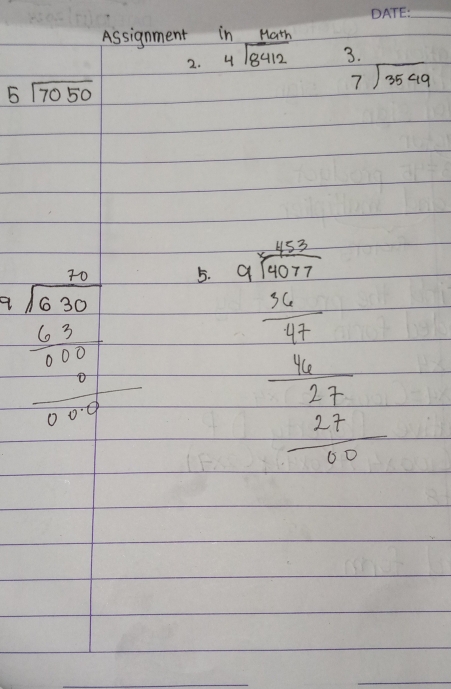 DATE:
Assignment in Math
2. 4 8412 3.
7 3549
5 7050
453
70 5. 9 4077
9 630 36
63 47
000 46
0 27
000 27
00